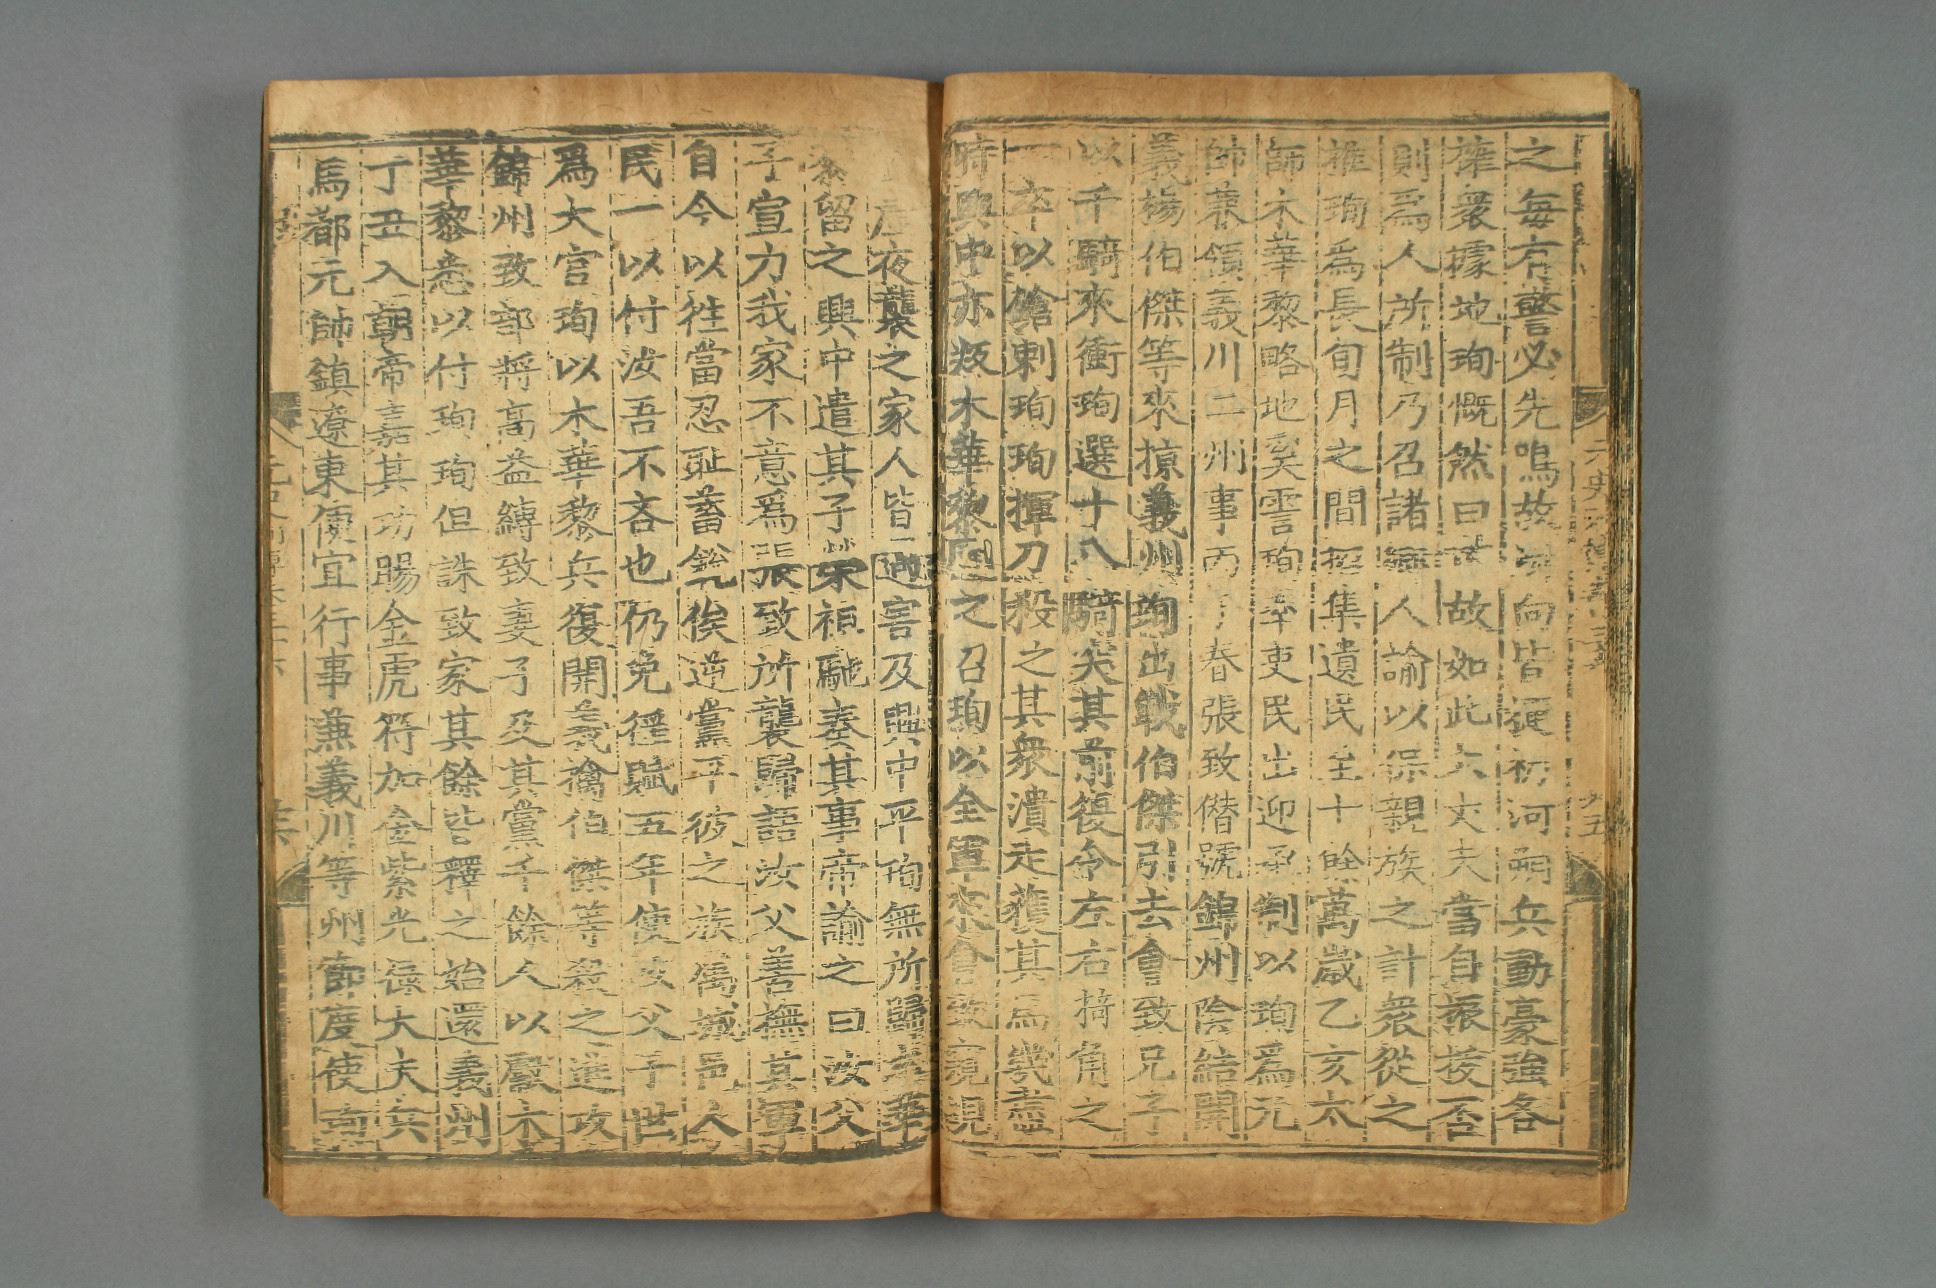 之每有警必先鳴故所向皆捷初河朔兵動豪強各
擁衆據地珣慨然曰世故如此大丈夫當自振拔否
則爲人所制乃召諸鄉人諭以保親族之計衆從之
推珣爲長旬月之間招集遺民至十餘萬歲乙亥太
師木華黎略地奚霫珣率吏民出迎承制以珣爲元
帥兼領義川二州事丙子春張致僭號錦州陰結開
義楊伯傑等來掠義州珣出戰伯傑引去會致兄子
以千騎來衝珣選十八騎突其前復令左右掎角之
一卒以鎗刺珣珣揮刀殺之其衆潰走獲其馬幾盡
時興中亦叛木華黎圍之召珣以全軍來會致窺覘
虛夜襲之家人皆遇害及興中平珣無所歸木華
黎留之興中遣其子榮祖馳奏其事帝諭之曰汝父
子宣力我家不意爲張致所襲歸語汝父善撫其軍
自今以往當忍耻蓄銳俟逆黨平彼之族屬城邑人
民一以付汝吾不吝也仍免徭賦五年使汝父子世
爲大官珣以木華黎兵復開義擒伯傑等殺之進攻
錦州致部將高益縛致妻子及其黨千餘人以獻木
華黎悉以付珣珣但誅致家其餘皆釋之始還義州
丁丑入朝帝嘉其功賜金虎符加金紫光祿大夫兵
馬都元帥鎮遼東便宜行事兼義川等州節度使